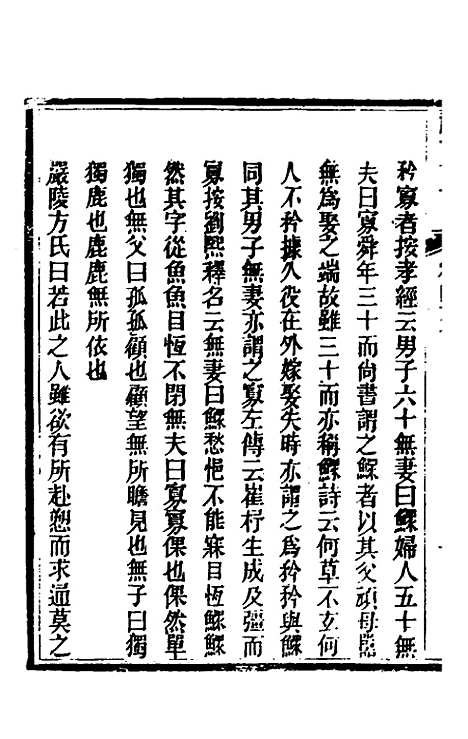 矜寡者按孝經云男子六十無妻曰鰥婦人五十無
夫曰寡舜年三十而尚書謂之鰥者以其父頑母嚚
無為娶之端故雖三十而亦稱鰥詩云何草不玄何
人不矜據久役在外嫁娶失時亦謂之為矜矜與鰥
同其男子無妻亦謂之寡左傳云崔杼生成及彊而
寡按劉熙釋名云無妻曰鰥愁悒不能寐目恆鰥鰥
然其字從魚魚目恆不閉無夫曰寡寡倮也倮然單
獨也無父曰孤孤顧也顧望無所瞻見也無子曰獨
獨鹿也鹿鹿無所依也
嚴陵方氏曰若此之人雖欲有所赴愬而求通莫之